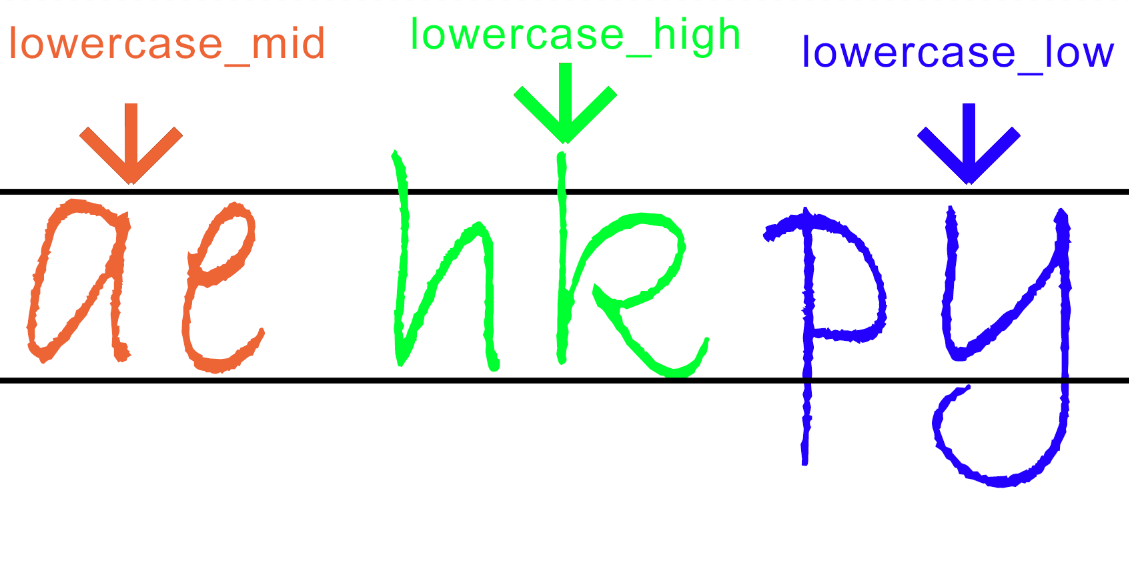 lowercase_mid lowercase_high lowercase_low
a e h k p y